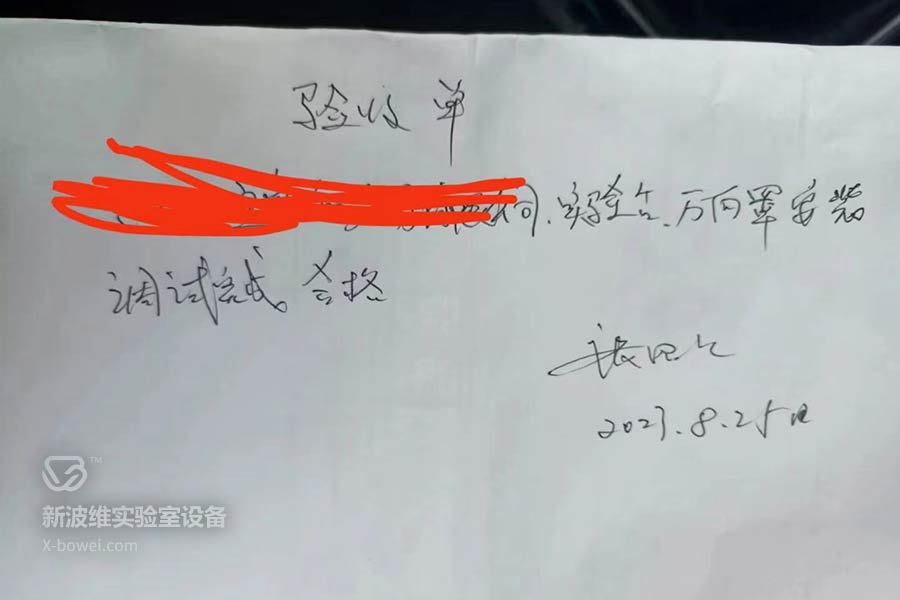 验收单
同、实验台、万向罩安装
调试完成。合格
2023.8.25日
TM
新波维实验室设备
X-bowei.com